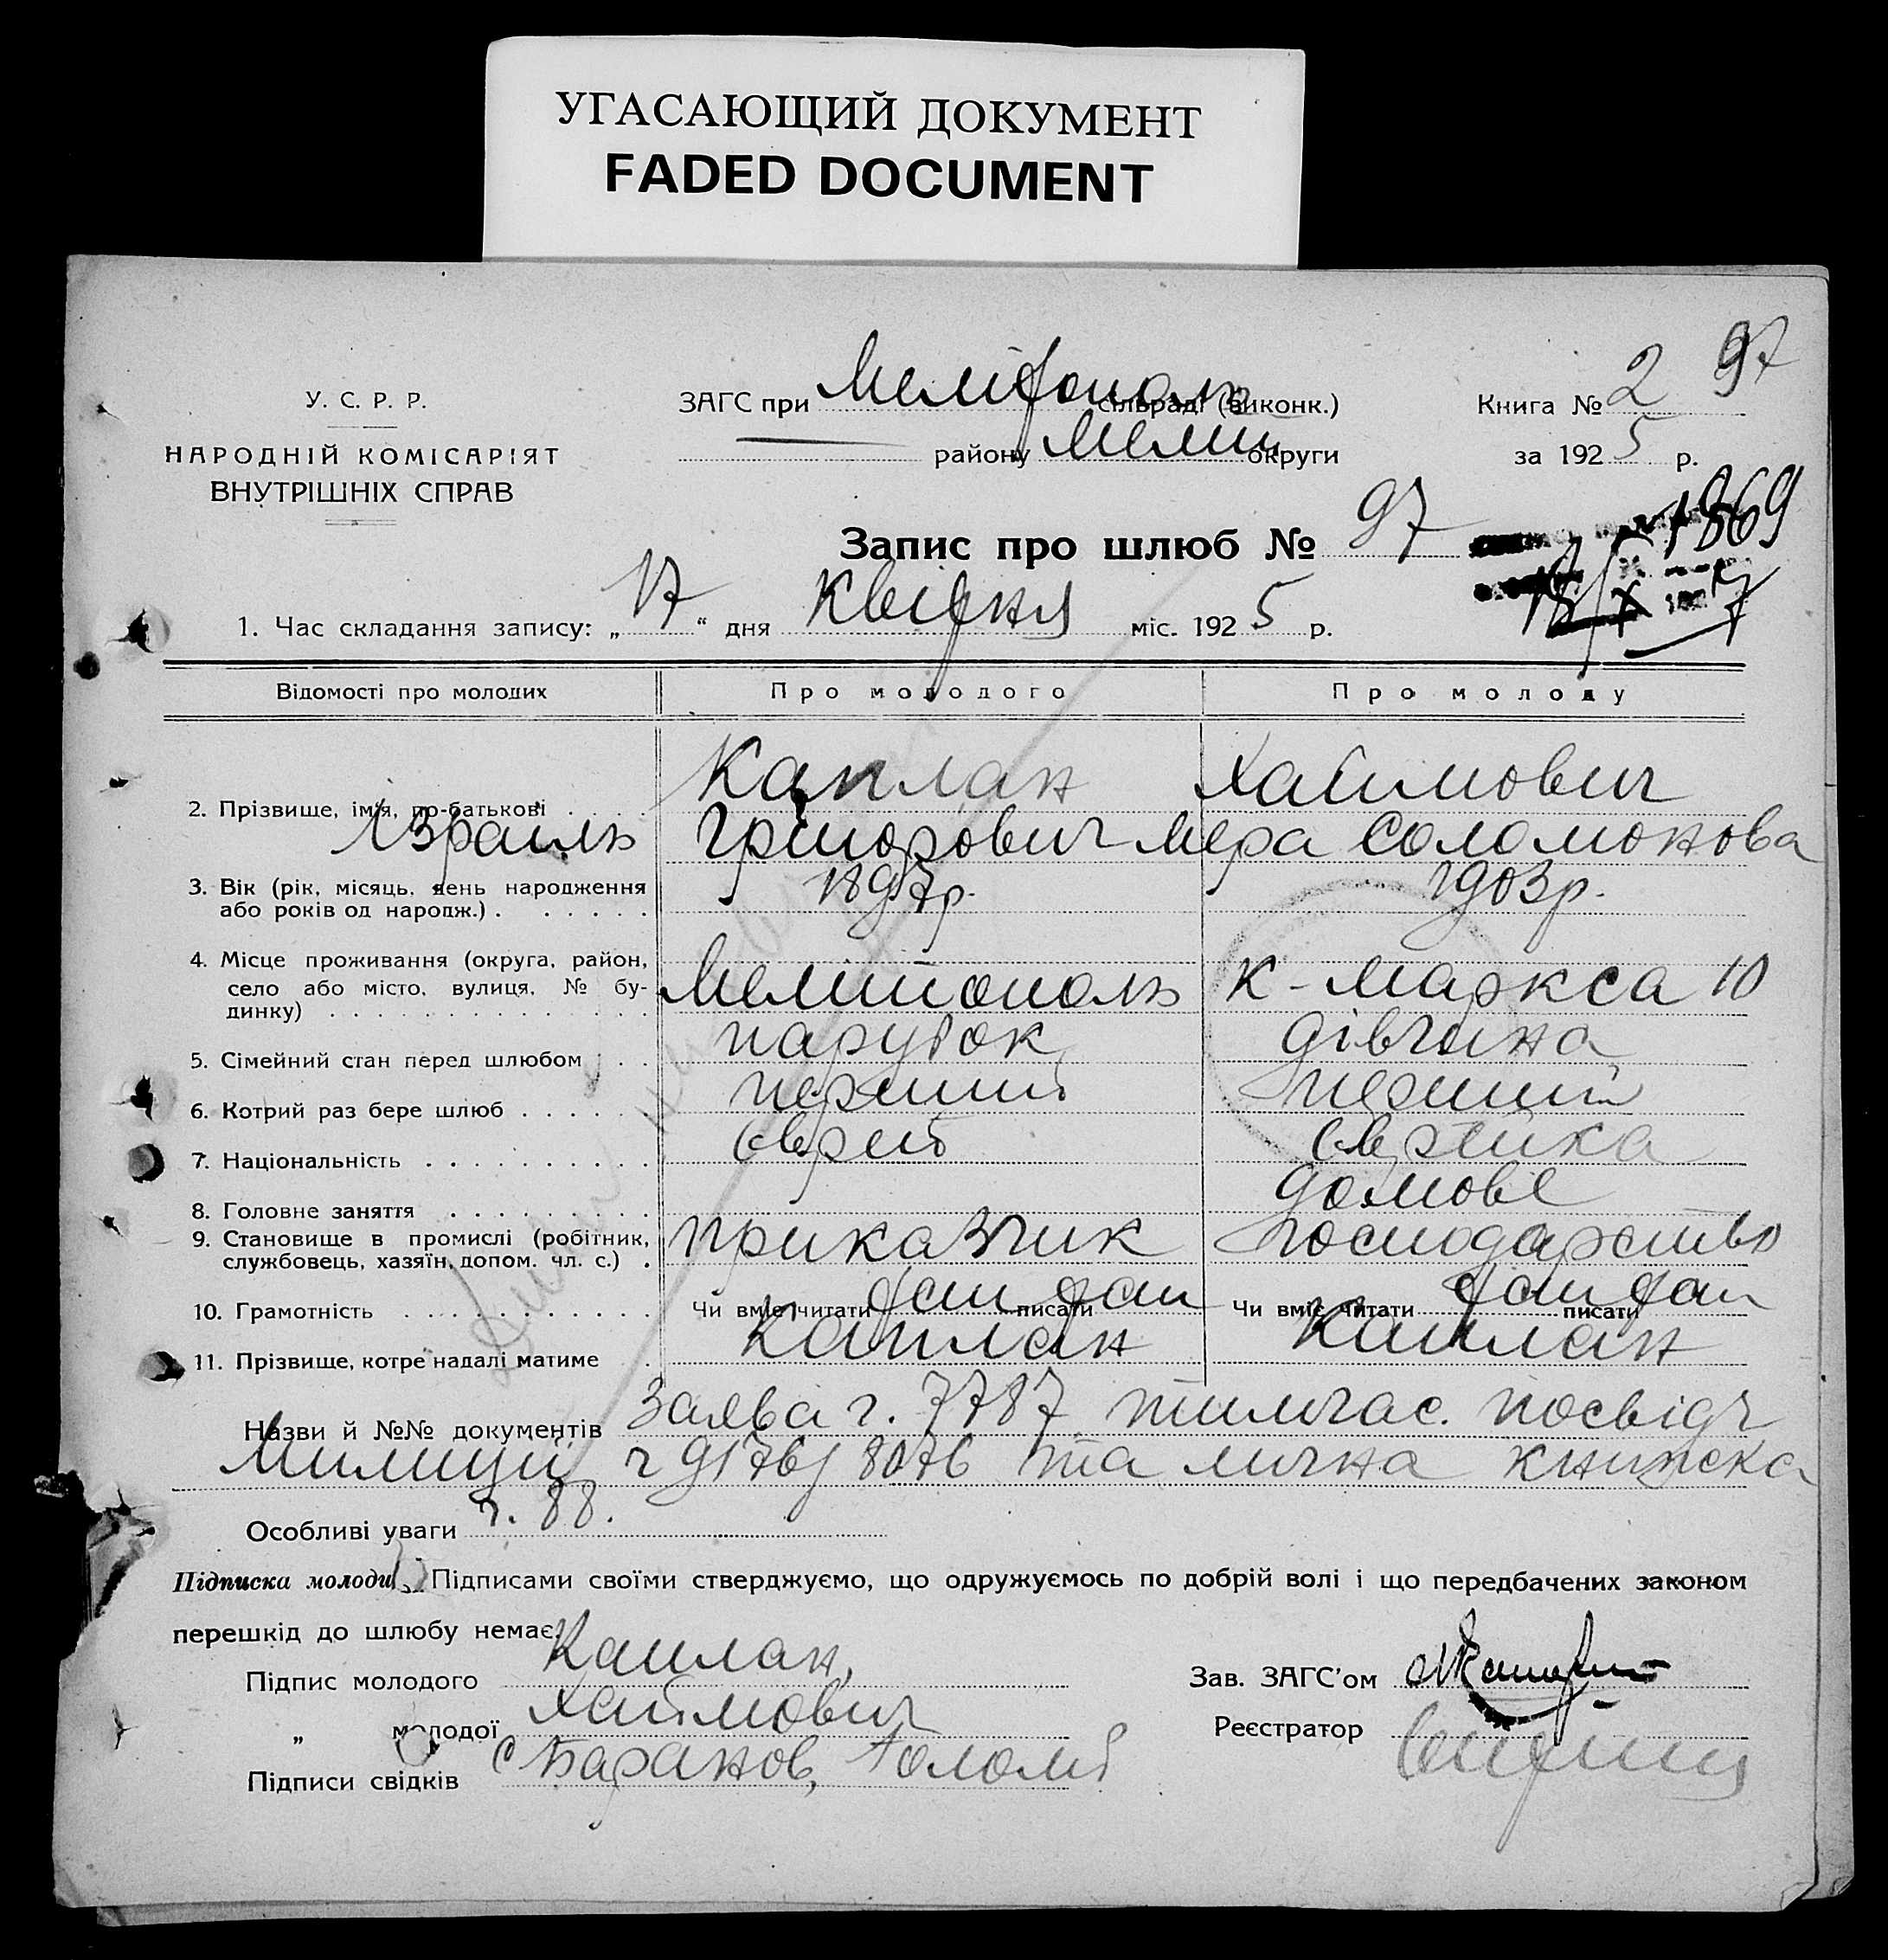 УГАСАЮЩИЙ ДОКУМЕНТ
FADED DOCUMENT
97
У. С. Р. Р.
НАРОДНІЙ КОМІСАРІЯТ
ВНУТРІШНІХ СПРАВ
ЗАГС при Мелітополь сільраді (виконк.)
району Мелит округи
Книга № 2
за 1925 р.
Запис про шлюб № 97
1869
1. Час складання запису: „17“ дня Квітня міс. 1925 р.
Відомості про молодих Про молодого Про молоду
2. Прізвище, ім'я, по-батькові Каплан Хаймович
Ізраиль Григорович Мера Соломонова
3. Вік (рік, місяць, день народження або років од народж.) 1897р. 1903р.
4. Місце проживання (округа, район, село або місто, вулиця, № будинку) Мелітополь К-Маркса 10
5. Сімейний стан перед шлюбом парубок дівчина
6. Котрий раз бере шлюб перший перший
7. Національність єврей єврейка
8. Головне заняття домове
9. Становище в промислі (робітник, службовець, хазяїн, допом. чл. с.) приказчик господарство
10. Грамотність Чи вміє читати так писати так Чи вміє читати так писати так
11. Прізвище, котре надалі матиме Каплан Каплан
Назви й №№ документів Заява ч. 7787 тимчас. посвідч
Милиції ч 9176/8076 та лична книжка
Особливі уваги ч. 88.
Підписка молодих. Підписами своїми стверджуємо, що одружуємось по добрій волі і що передбачених законом
перешкід до шлюбу немає.
Підпис молодого Каплан,
„ молодої Хаймович
Підписи свідків Баранов,
Зав. ЗАГС'ом
Реєстратор